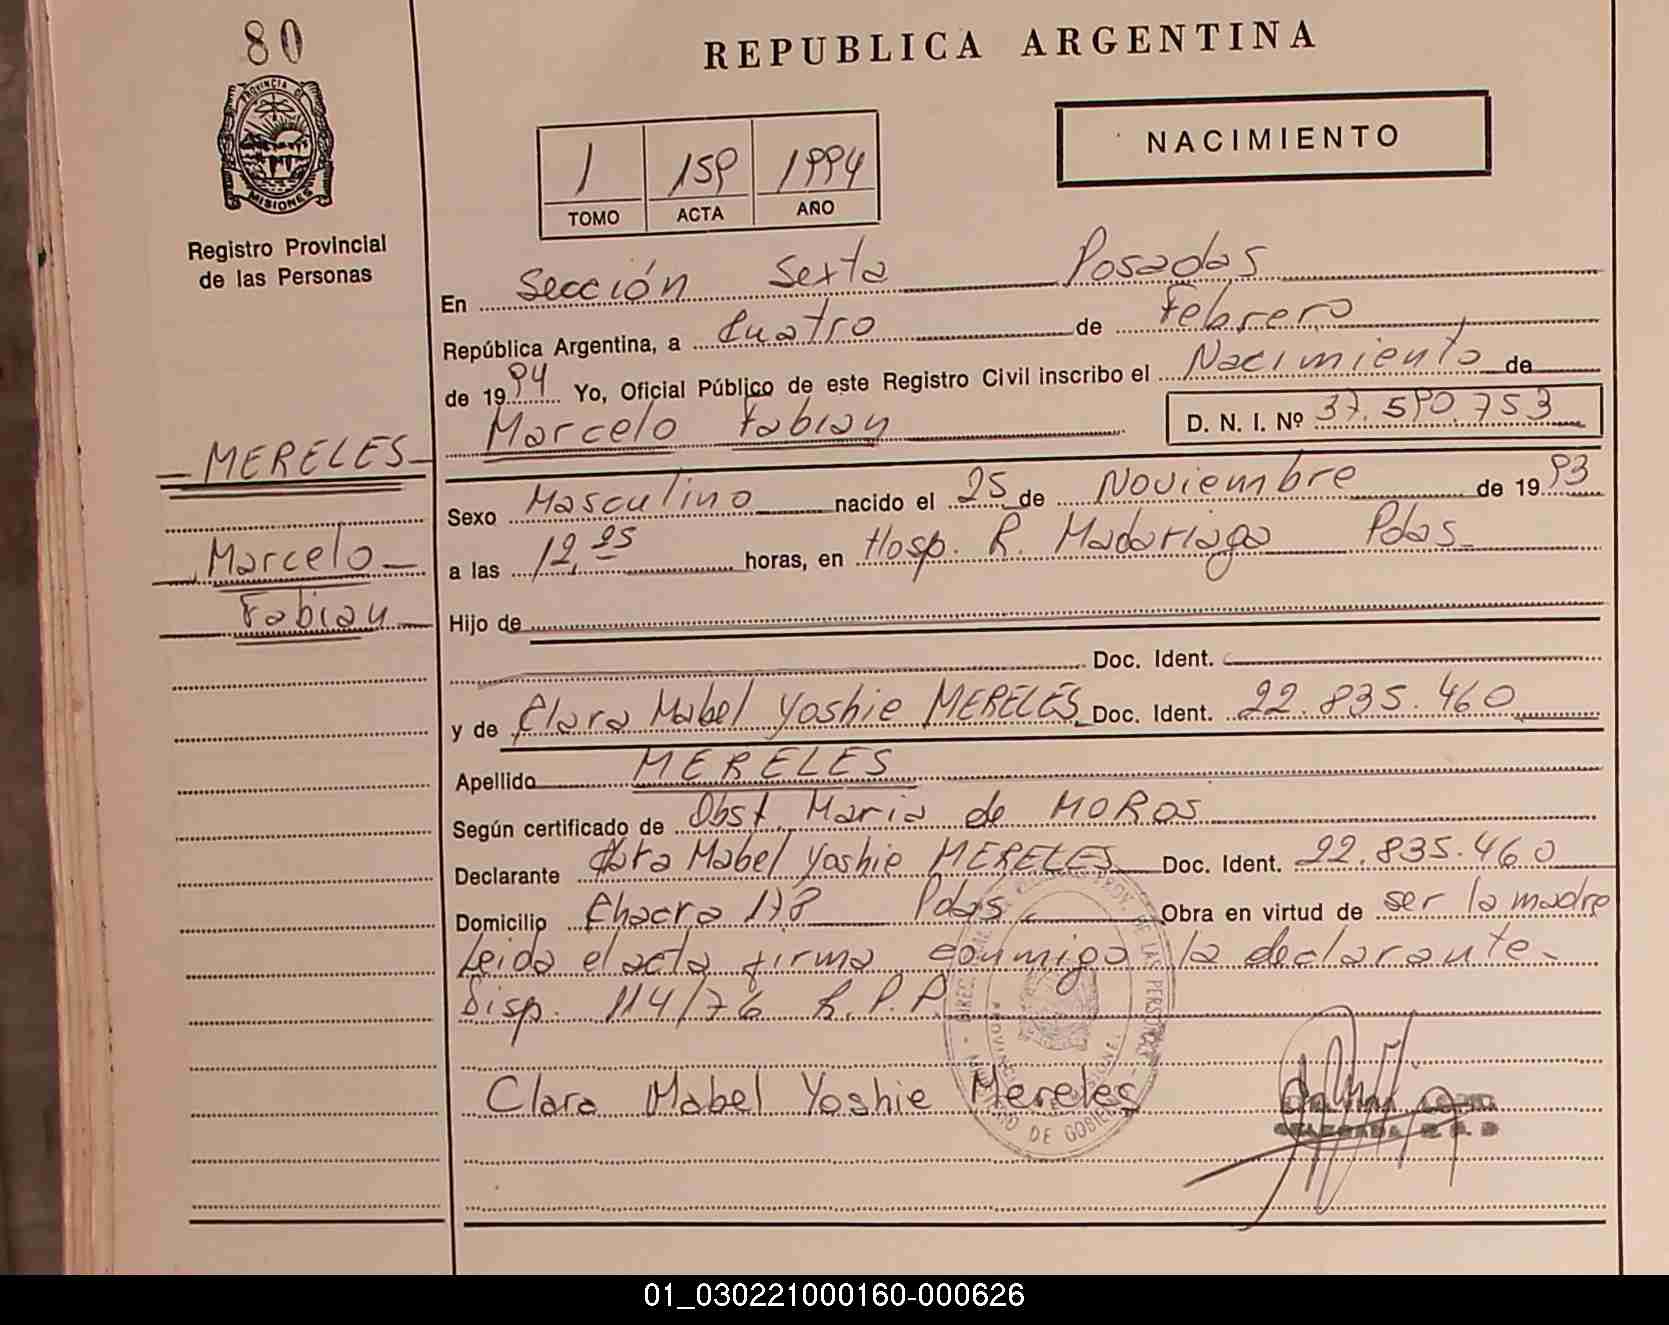 80
REPUBLICA ARGENTINA
PROVINCIA DE
MISIONES
Registro Provincial
de las Personas
1 159 1994
TOMO ACTA AÑO
NACIMIENTO
En Sección Sexta Posadas
República Argentina, a Cuatro de Febrero
de 1994 Yo, Oficial Público de este Registro Civil inscribo el Nacimiento de
Marcelo Fabian D. N. I. Nº 37.590.753
MERELES
Marcelo
Fabian
Sexo Masculino nacido el 25 de Noviembre de 1993
a las 12,25 horas, en Hosp. R. Madariaga Pdas
Hijo de
Doc. Ident.
y de Clara Mabel Yoshie MERELES Doc. Ident. 22.835.460
Apellido MERELES
Según certificado de Obst. Maria de MOROS
Declarante Clara Mabel Yoshie MERELES Doc. Ident. 22.835.460
Domicilio Chacra 178 Pdas. Obra en virtud de ser la madre
Leida el acta firma conmigo la declarante.
Disp. 114/76 R.P.P.
Clara Mabel Yoshie Mereles
01_030221000160-000626